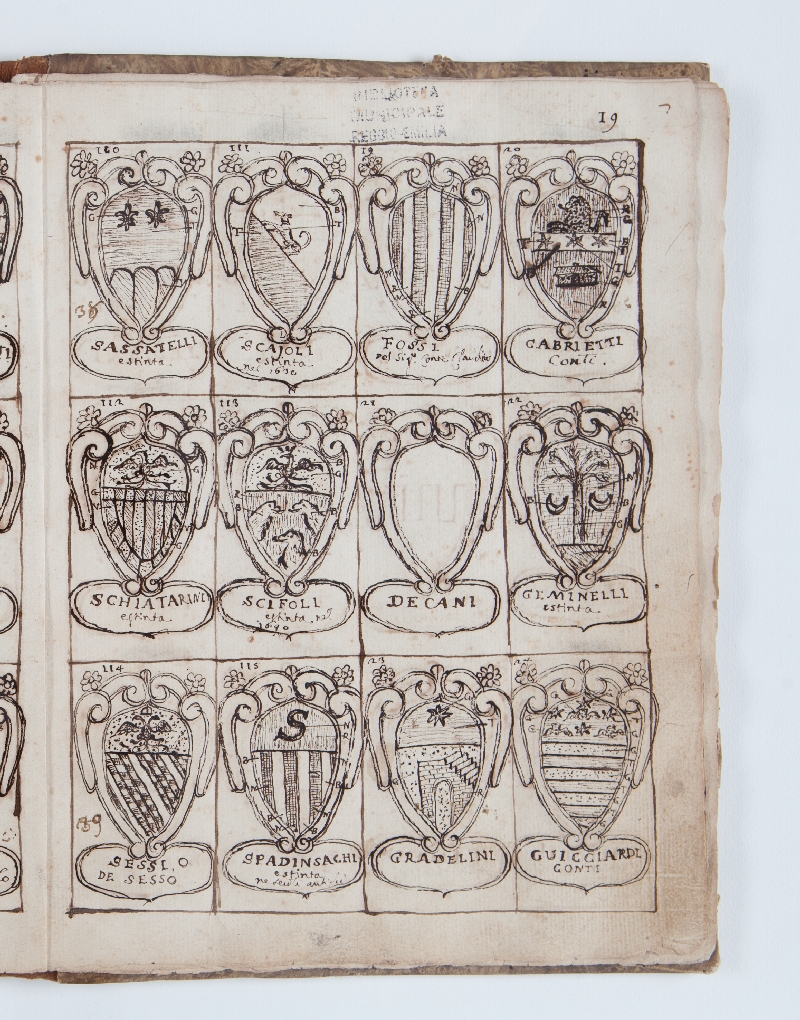 BIBLIOTECA
MUNICIPALE
REGGIO-EMILIA
19
110
111
19
20
38
SASSATELLI
estinta.
SCAJOLI
estinta
nel 1630
FOSSI
del Sig.r Conte Claudio
GABRIETTI
Conti.
112
113
21
22
SCHIATARINI
estinta.
SCIFOLI
estinta nel
1690
DECANI
GEMINELLI
estinta.
114
115
23
S
49
SESSI, O
DE SESSO
SPADINSACHI
estinta
GRADELINI
GUICCIARDI
CONTI